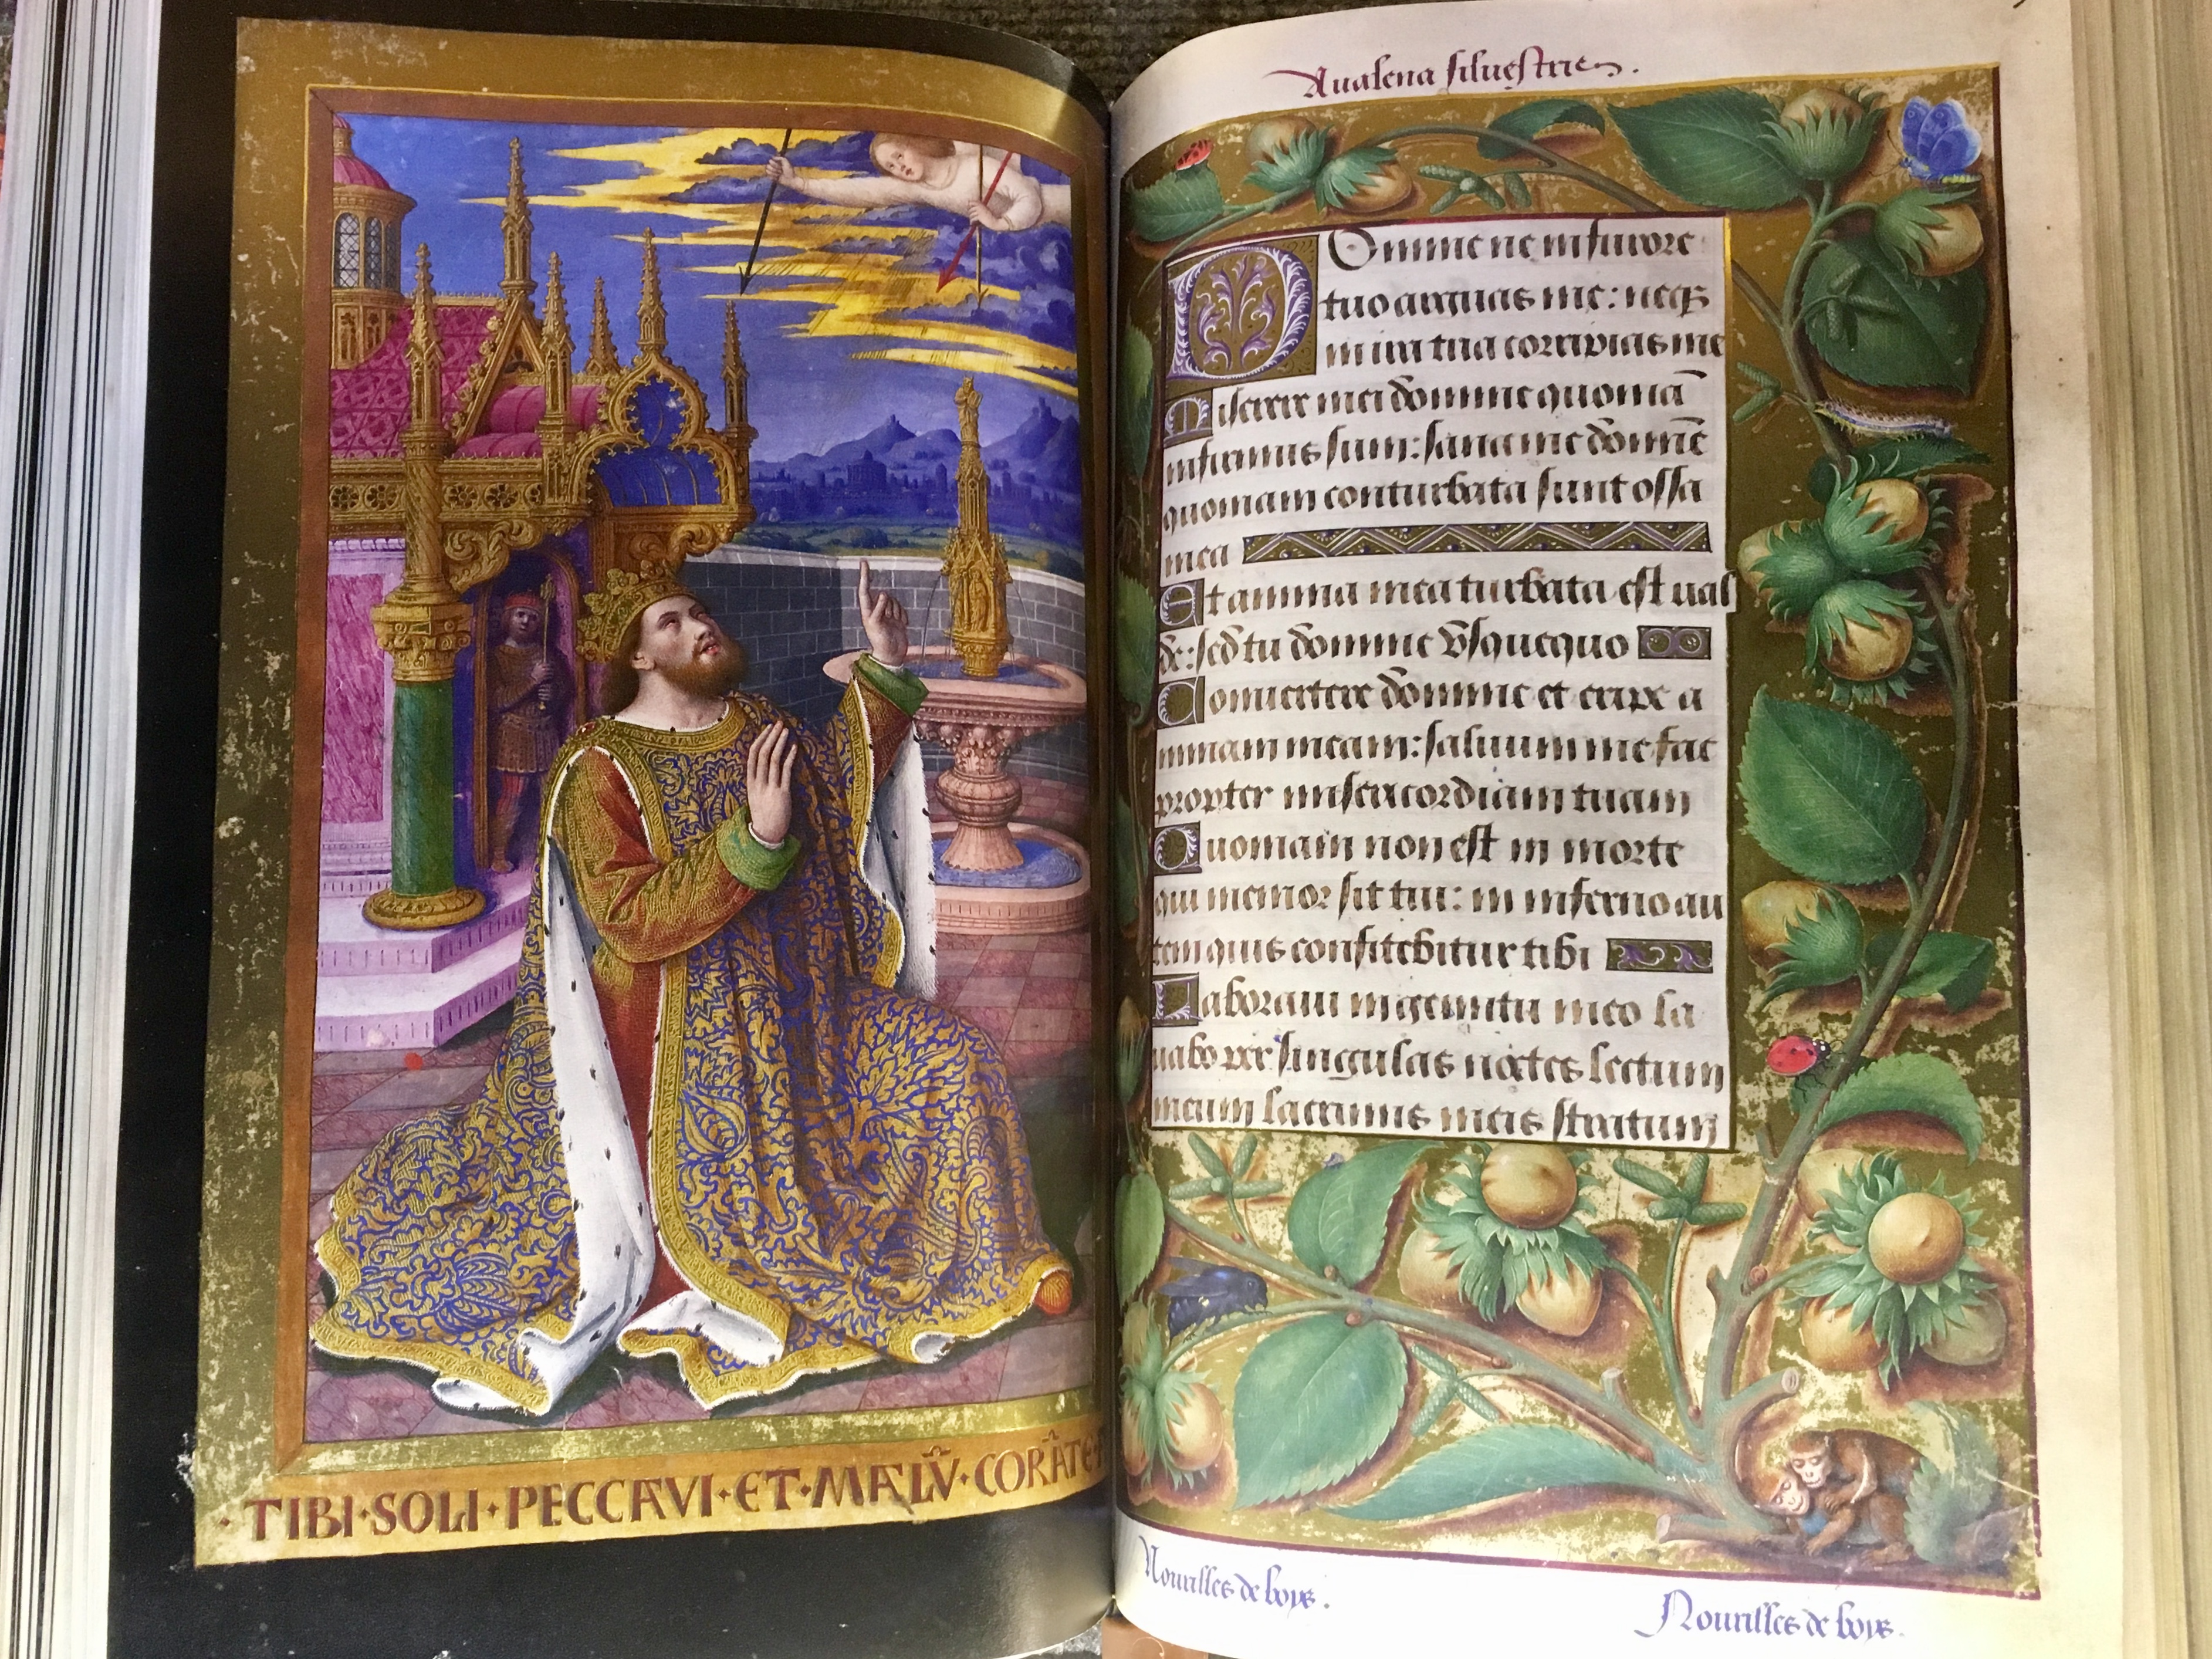 ·TIBI·SOLI·PECCAVI·ET·MALV̄·CORĀTE·
Aualena siluestries.
Domine ne in furore
tuo arguas me: neqȝ
in ira tua corripias me
Miserere mei domine quoniā
infirmus sum: sana me domīe
quoniam conturbata sunt ossa
mea
Et anima mea turbata est ual
de: sed tu domine vsquequo
Conuertere domine et eripe a
nimam meam: saluum me fac
propter misericordiam tuam
Quoniam non est in morte
qui memor sit tui: in inferno au
tem quis confitebitur tibi
Laboraui in gemitu meo la
uabo per singulas noctes lectum
meum lacrimis meis stratum
Nouzilles de boys.
Nouzilles de boys.